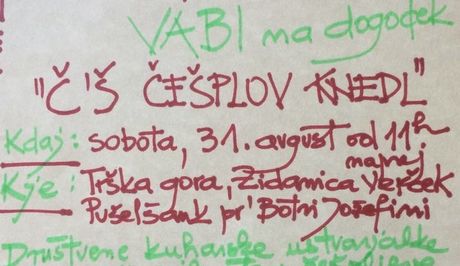 VABI na dogodek
"Č'Š ČEŠPLOV KNEDL"
Kdaj: sobota, 31. avgust od 11h
naprej
Kje: Trška gora, Zidanica Verček
Pušelšank pr' Botri Jožefini
Društvene kuharske ustvarjalke